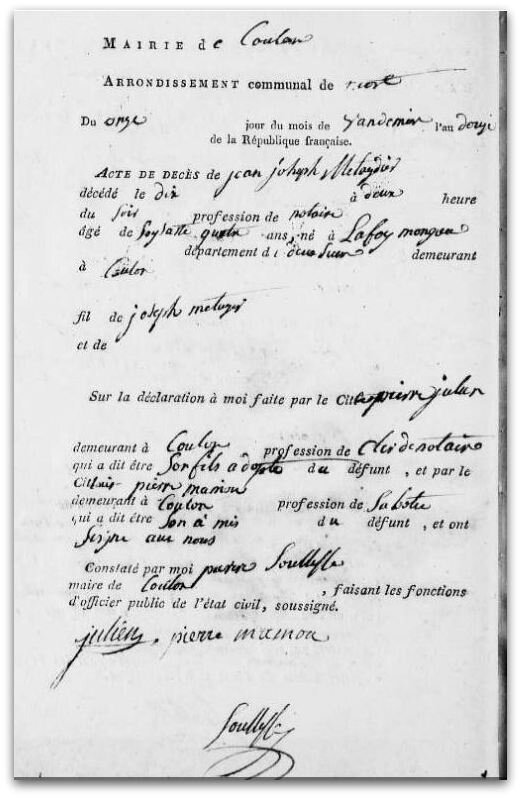 MAIRIE de Coulon
ARRONDISSEMENT communal de niort
Du onze jour du mois de Vandemier l'an douze
de la République française.
ACTE DE DECÈS de jean joheph Metaydier
décédé le dix à deux heure
du soir profession de notaire
âgé de soysante quatre ans, né à Lafoy mongeau
département d deux Sevre demeurant
à Coulon
fil de joseph metayer
et de
Sur la déclaration à moi faite par le Cit pierre julien
demeurant à Coulon profession de Clerc de notaire
qui a dit être Son fils adopte du défunt , et par le
Cit pierre mamou
demeurant à Coulon profession de Sabotie
qui a dit être Son a mis du défunt , et ont
Signe avec nous
Constaté par moi pierre Soullisse
maire de Coulon , faisant les fonctions
d'officier public de l'état civil, soussigné.
julien, pierre mamou
Soullisse